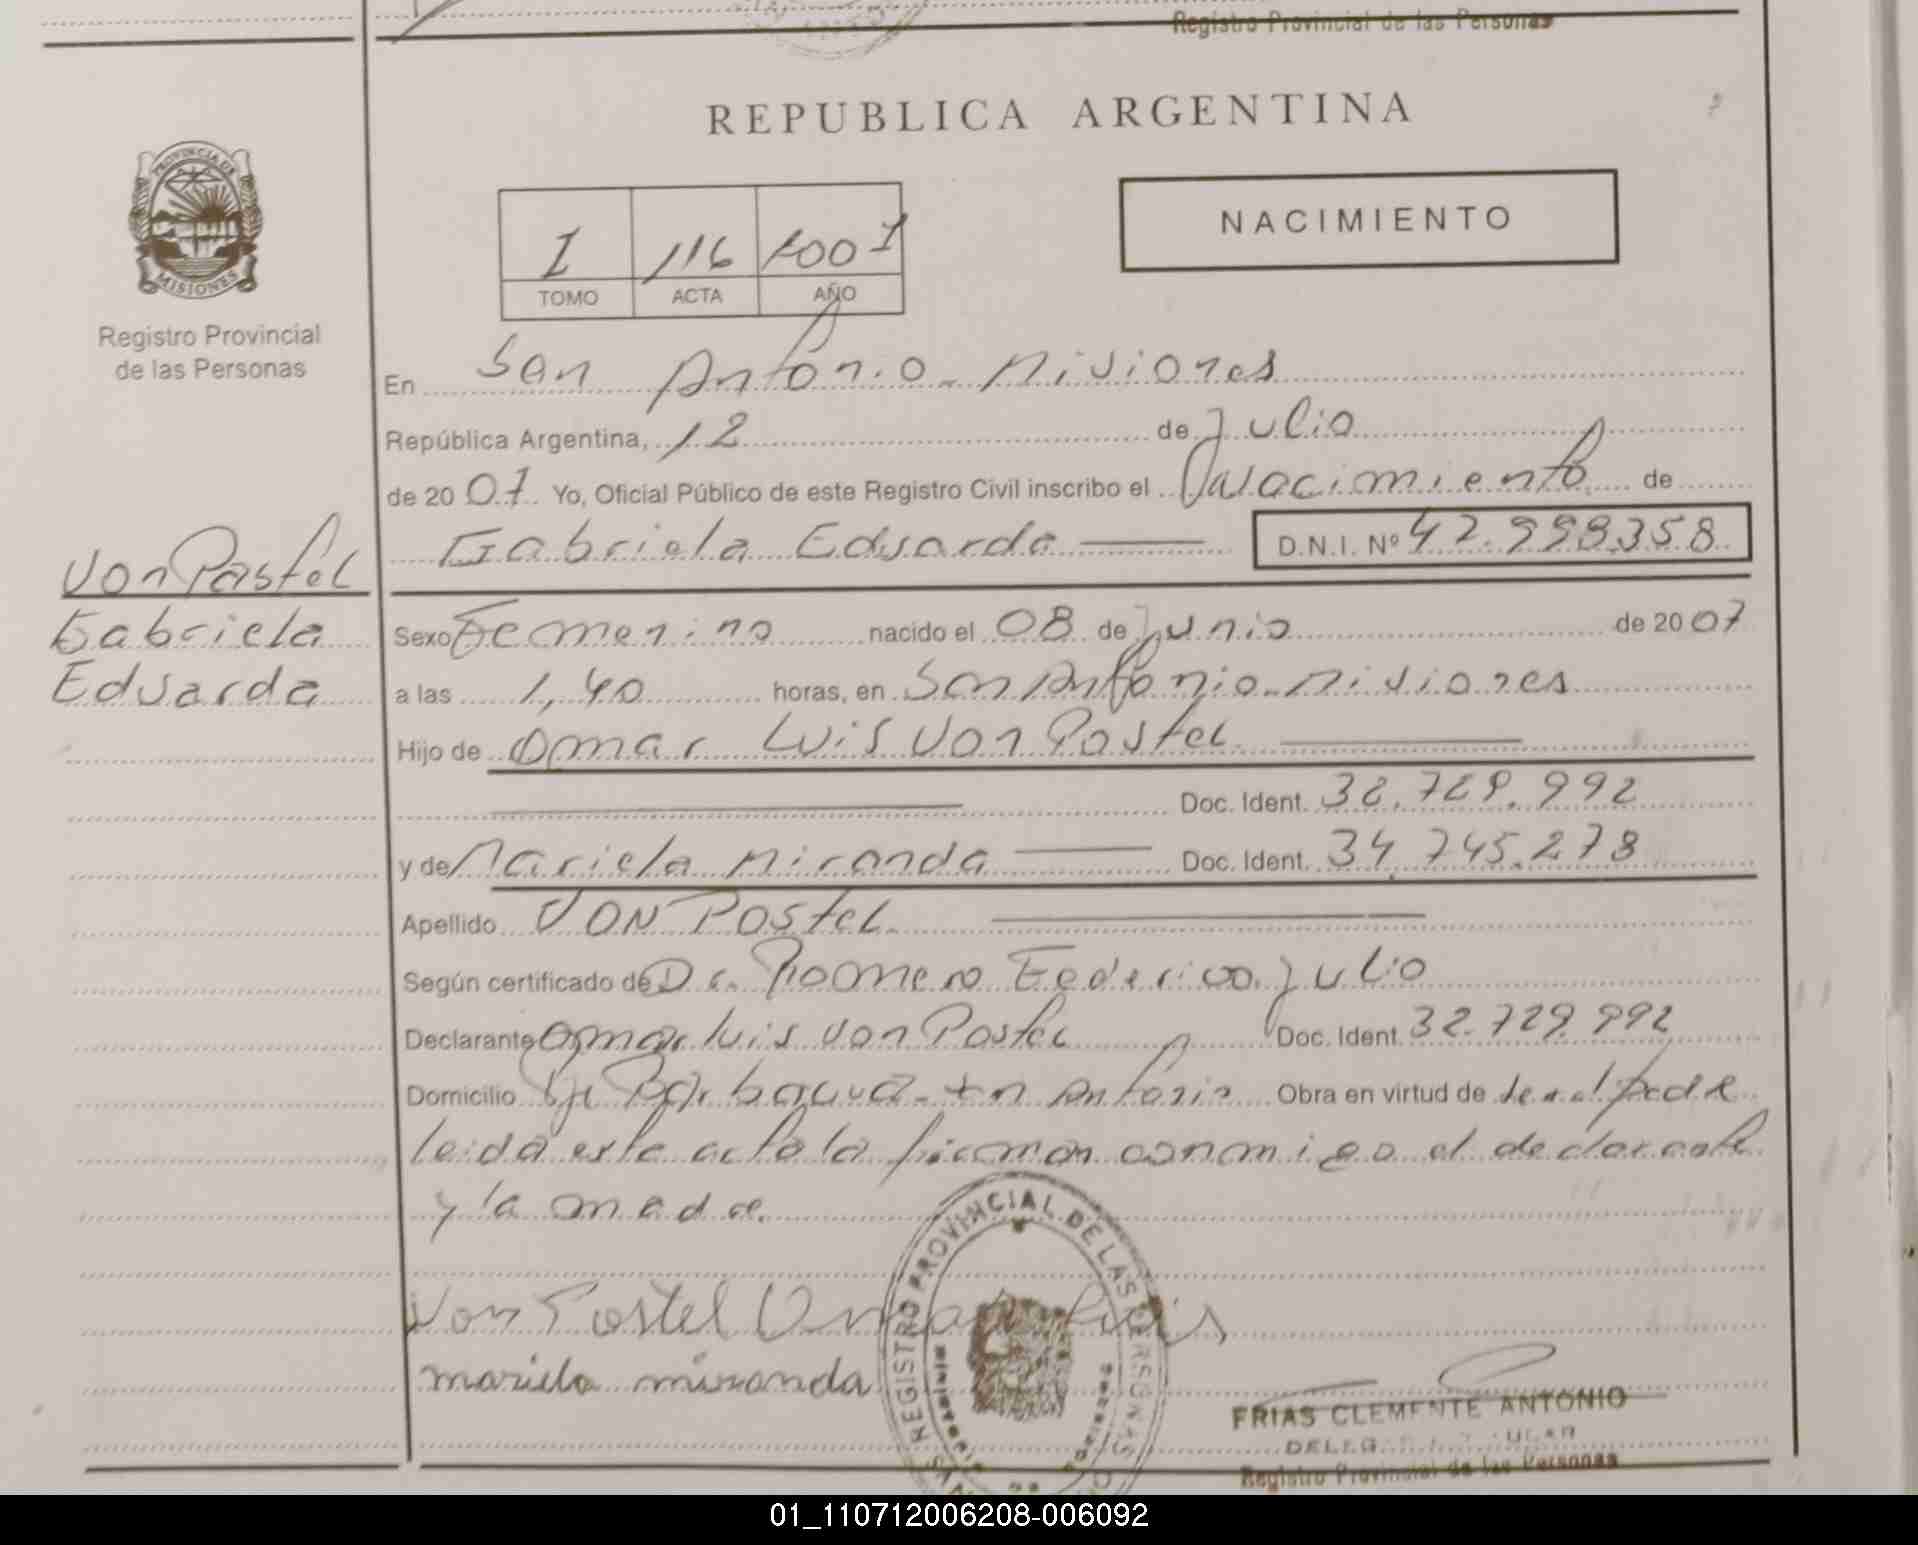 Registro Provincial de las Personas
REPUBLICA ARGENTINA
PROVINCIA DE
MISIONES
Registro Provincial
de las Personas
NACIMIENTO
I 116 2007
TOMO ACTA AÑO
En San Antonio - Misiones
República Argentina, 12 de Julio
de 20 07 Yo, Oficial Público de este Registro Civil inscribo el Nacimiento de
Gabriela Eduarda D.N.I. Nº 42.999.358
Von Postel
Gabriela
Eduarda
Sexo Femenino nacido el 08 de Junio de 20 07
a las 1,40 horas, en San Antonio - Misiones
Hijo de Omar Luis Von Postel
Doc. Ident. 32.729.992
y de Mariela Miranda Doc. Ident. 34.745.278
Apellido VON POSTEL
Según certificado de Dr. Romero Federico Julio
Declarante Omar Luis Von Postel Doc. Ident. 32.729.992
Domicilio San Antonio Obra en virtud de
leida este acta la firman conmigo el declarante
y la madre.
Von Postel Omar Luis
mariela miranda
REGISTRO PROVINCIAL DE LAS PERSONAS
FRIAS CLEMENTE ANTONIO
Registro Provincial de las Personas
01_110712006208-006092